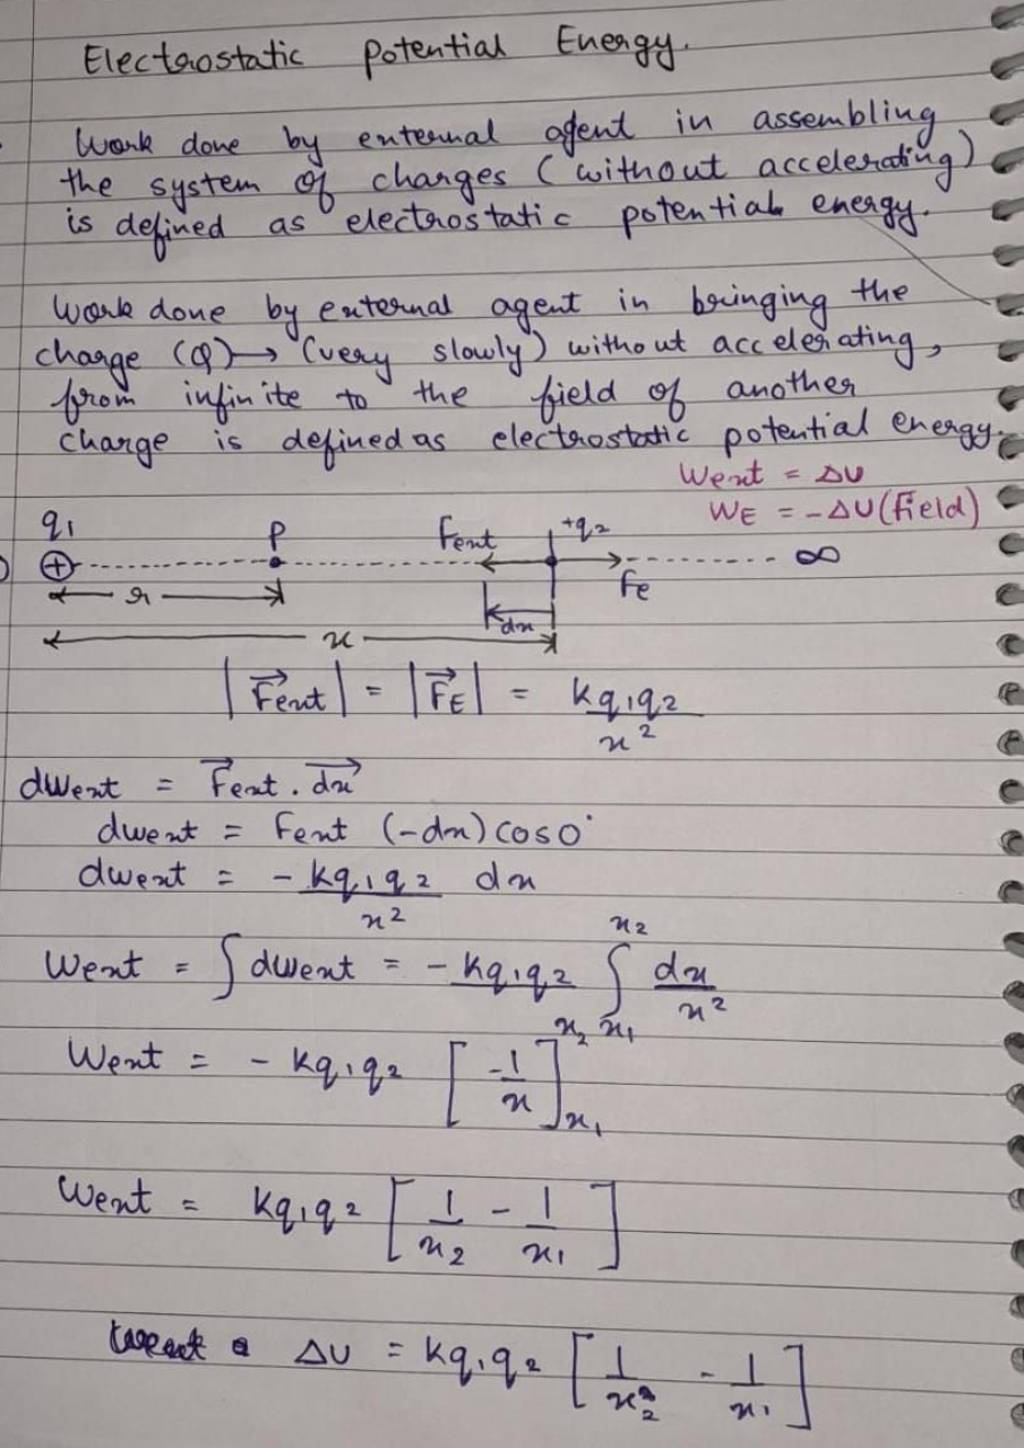 Electrostatic Potential Energy.
Work done by external agent in assembling
the system of charges (without accelerating)
is defined as electrostatic potential energy.
Work done by external agent in bringing the
charge (Q) → (very slowly) without accelerating,
from infinite to the field of another
charge is defined as electrostatic potential energy.
Wext = ΔU
WE = -ΔU (field)
q1 P Fext +q2 ∞
⊕ Fe
r dx
x
|F⃗ext| = |F⃗E| = kq1q2/x²
dWext = F⃗ext . dx⃗
dwext = Fext (-dx) cos0°
dwext = - kq1q2/x² dx
Wext = ∫dWext = - kq1q2 ∫_{x1}^{x2} dx/x²
Wext = - kq1q2 [-1/x]_{x1}^{x2}
Wext = kq1q2 [1/x2 - 1/x1]
ΔU = kq1q2 [1/x2 - 1/x1]